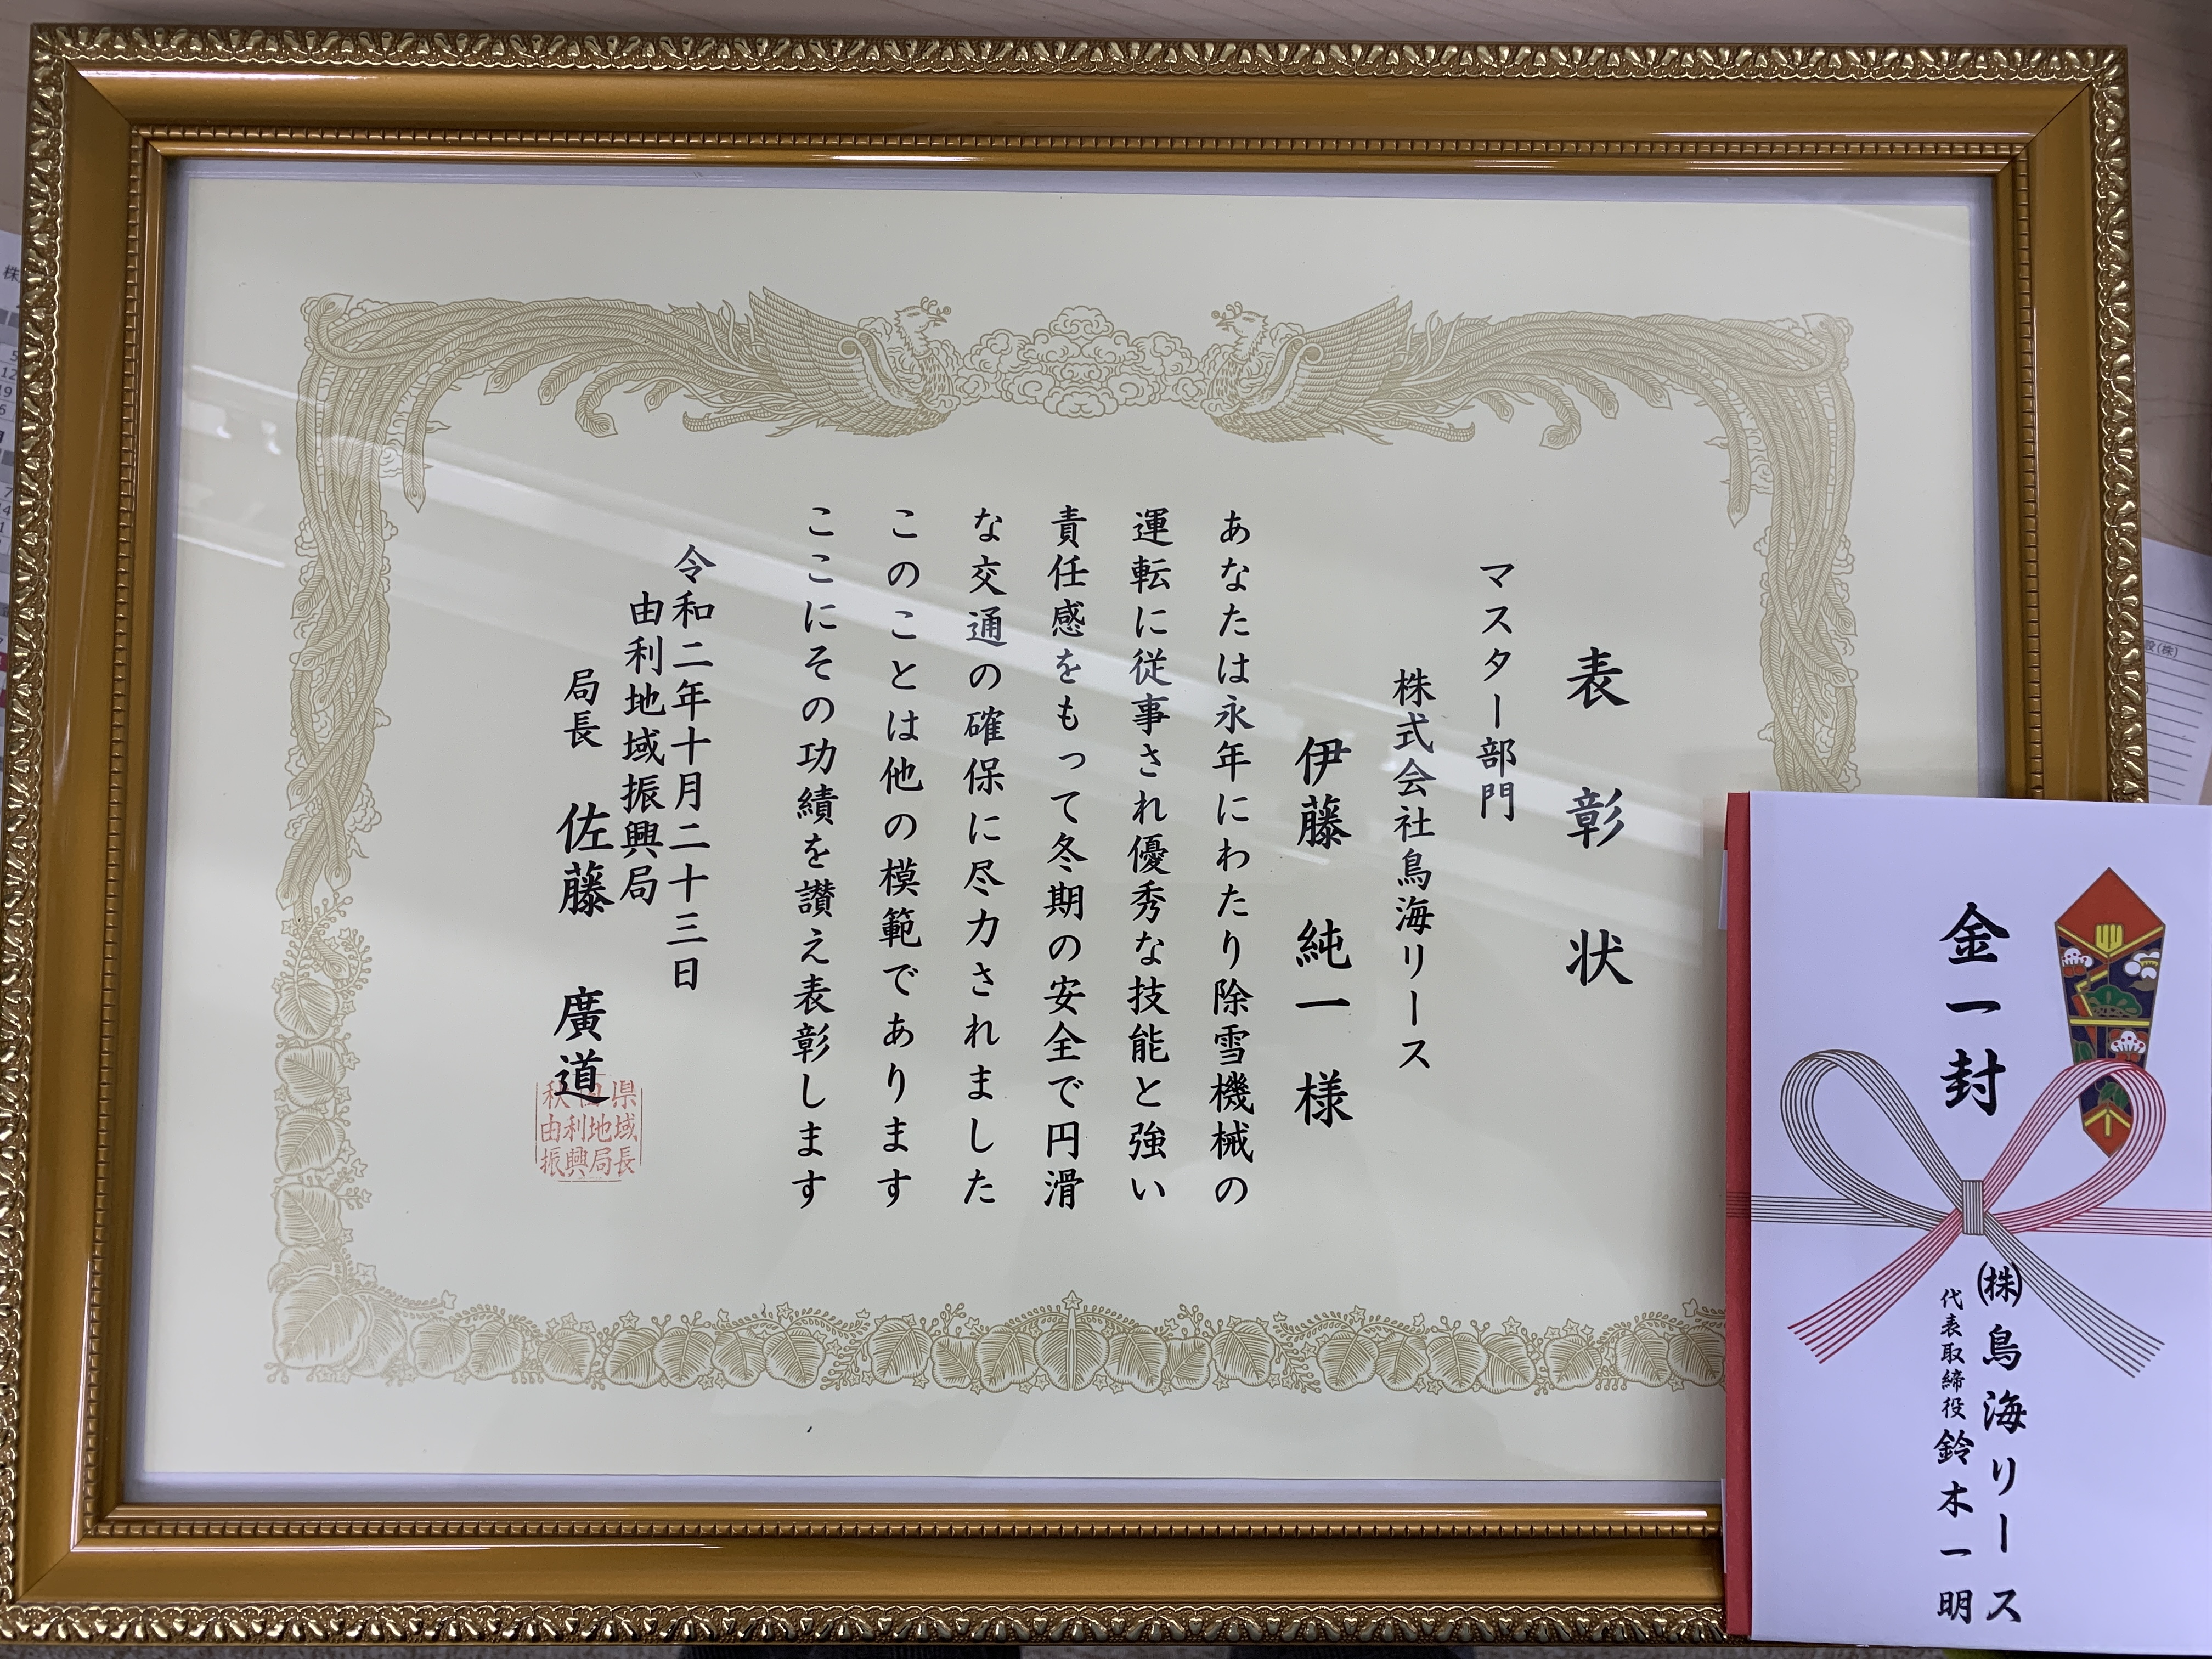 表彰状
マスター部門
株式会社鳥海リース
伊藤 純一 様
あなたは永年にわたり除雪機械の
運転に従事され優秀な技能と強い
責任感をもって冬期の安全で円滑
な交通の確保に尽力されました
このことは他の模範であります
ここにその功績を讃え表彰します
令和二年十月二十三日
由利地域振興局
局長 佐藤 廣道
秋田県
由利地域
振興局長
金一封
㈱鳥海リース
代表取締役 鈴木一明